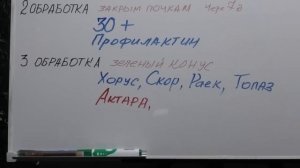 2 ОБРАБОТКА ЗАКРЫМ ПОЧКАМ ЧЕРЕЗ 7 д
30 +
ПРОФИЛАКТИН
3 ОБРАБОТКА ЗЕЛЕНЫЙ КОНУС
ХОРУС, СКОР, РАЕК, ТОПАЗ
АКТАРА,